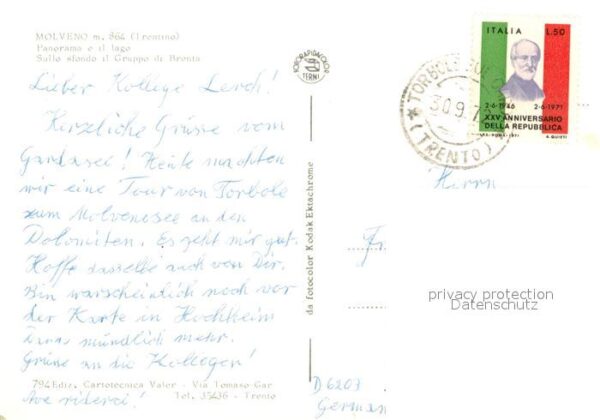 MOLVENO m. 864 (Trentino)
Panorama e il lago
Sullo sfondo il Gruppo di Brenta
Lieber Kollege Lerch!
Herzliche Grüsse vom
Gardasei! Heute machten
wir eine Tour von Torbole
zum Molvenosee an den
Dolomiten. Es geht mir gut.
Hoffe dasselbe auch von Dir.
Bin warscheinlich noch vor
der Karte in Hochheim
Dann mündlich mehr.
Grüsse an die Kollegen!
794 Ediz. Cartotecnica Valer - Via Tomaso Gar
Tel. 35436 - Trento
Ave riderci!
FOTORAPIDACOLOR
TERNI
da fotocolor Kodak Ektachrome
ITALIA L.50
2-6-1946 2-6-1971
XXV ANNIVERSARIO
DELLA REPUBBLICA
TORBOLE
30.9.7
(TRENTO)
Herrn
Fr
privacy protection
Datenschutz
D 6203
German